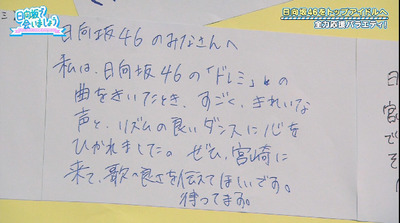 日向坂で会いましょう
日向坂46をトップアイドルへ
全力応援バラエティ!
日向坂46のみなさんへ
私は、日向坂46の「ドレミ」の
曲をきいたとき、すごく、きれいな
声と、リズムの良いダンスに心を
ひかれました。ぜひ、宮崎に
来て、歌の良さを伝えてほしいです。
待ってます。